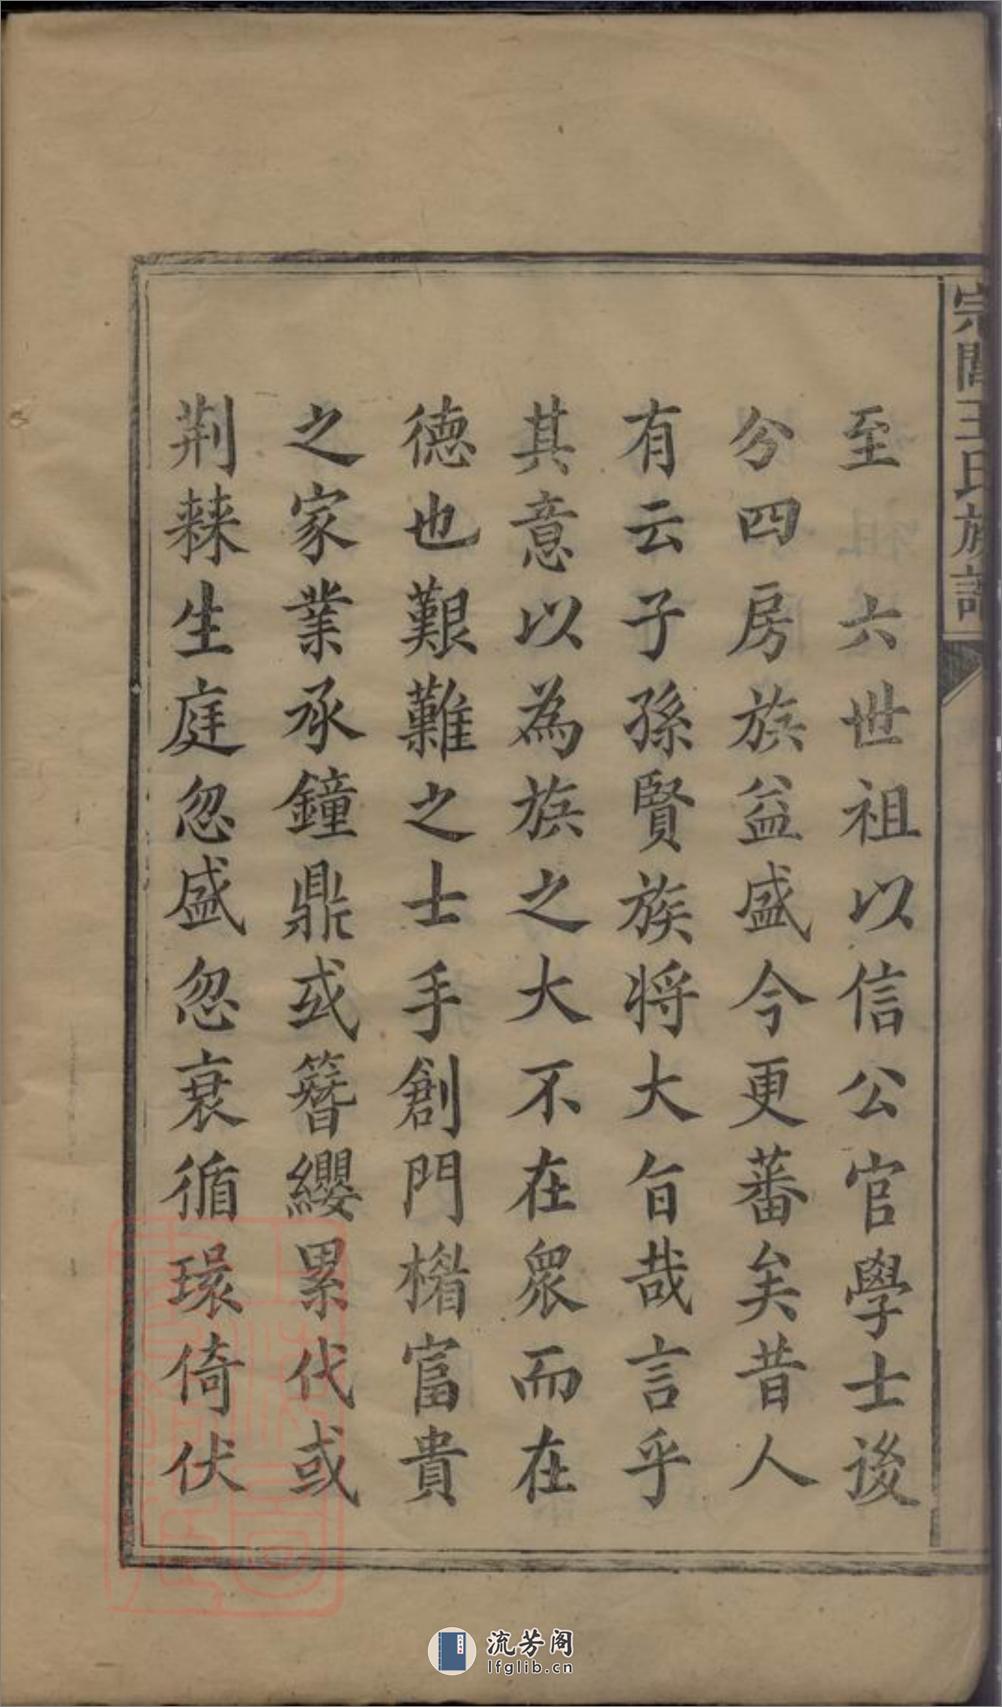 宗關王氏族譜
至六世祖以信公官學士後
分四房族益盛今更蕃矣昔人
有云子孫賢族將大旨哉言乎
其意以為族之大不在衆而在
德也艱難之士手創門楣富貴
之家業承鐘鼎或簪纓累代或
荆棘生庭忽盛忽衰循環倚伏
流芳阁
lfglib.cn